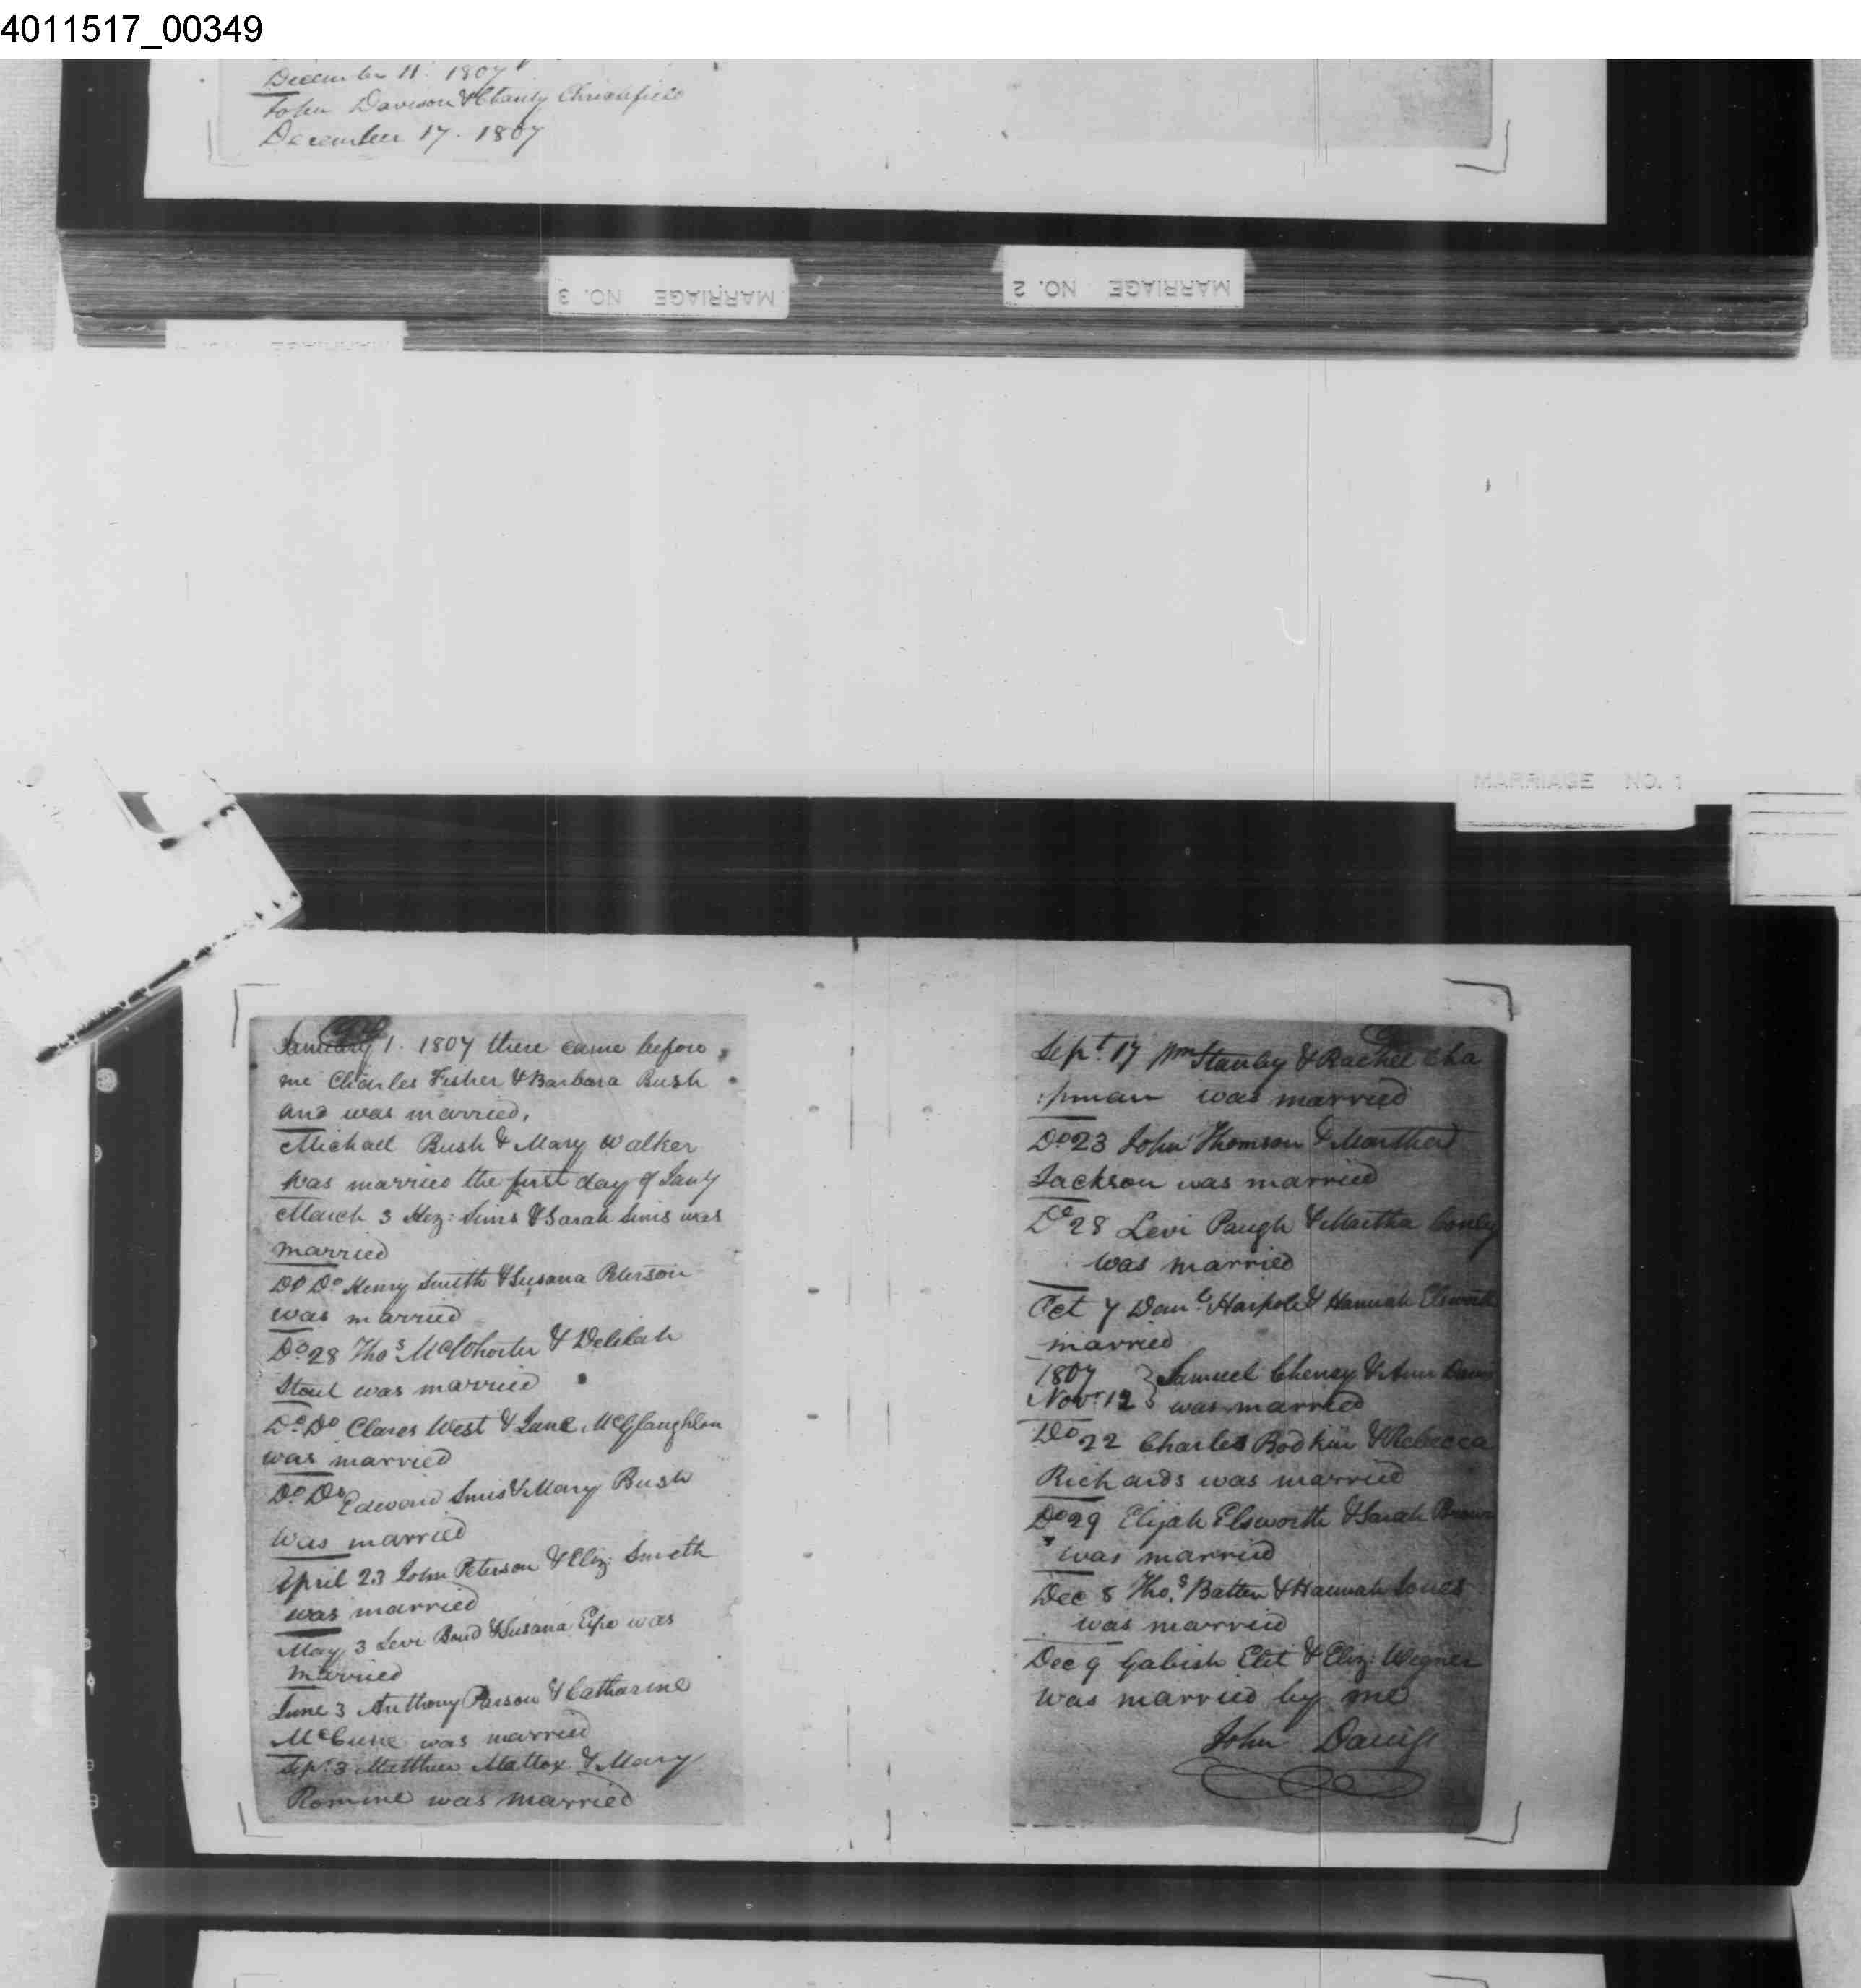 4011517_00349
December 11. 1807
John Davison & Charity
December 17. 1807
MARRIAGE NO. 3
MARRIAGE NO. 2
MARRIAGE NO. 1
January 1. 1807 there came before
me Charles Fisher & Barbara Bush
and was married,
Michael Bush & Mary Walker
was married the first day of Jany
March 3 Hez: Sims & Sarah Sims was
married
Do Do Henry Smith & Susana Peterson
was married
Do 28 Thos McWhorter & Delilah
Stout was married
Do Do Clares West & Jane McGlaughlon
was married
Do Do Edward Sims & Mary Bush
was married
April 23 John Peterson & Eliz: Smith
was married
May 3 Levi Bond & Susana was
married
June 3 Anthony Parson & Catharine
McCune was married
Sepr 3 Matthew Mattox & Mary
Romine was married
Sept. 17 Wm Stanley & Rachel Cha
:pman was married
Do 23 John Thomson & Martha
Jackson was married
Do 28 Levi Paugh & Martha
was married
Oct 7 Danl Harpole & Hannah Elsworth
married
1807 } Samuel Cheney & Ann Davis
Novr 12 } was married
Do 22 Charles Bodkin & Rebecca
Richards was married
Do 29 Elijah Elsworth & Sarah Brown
was married
Dec 8 Thos. Batten & Hannah Jones
was married
Dec 9 Gabish Elit & Eliz: Wegner
was married by me
John Daviss